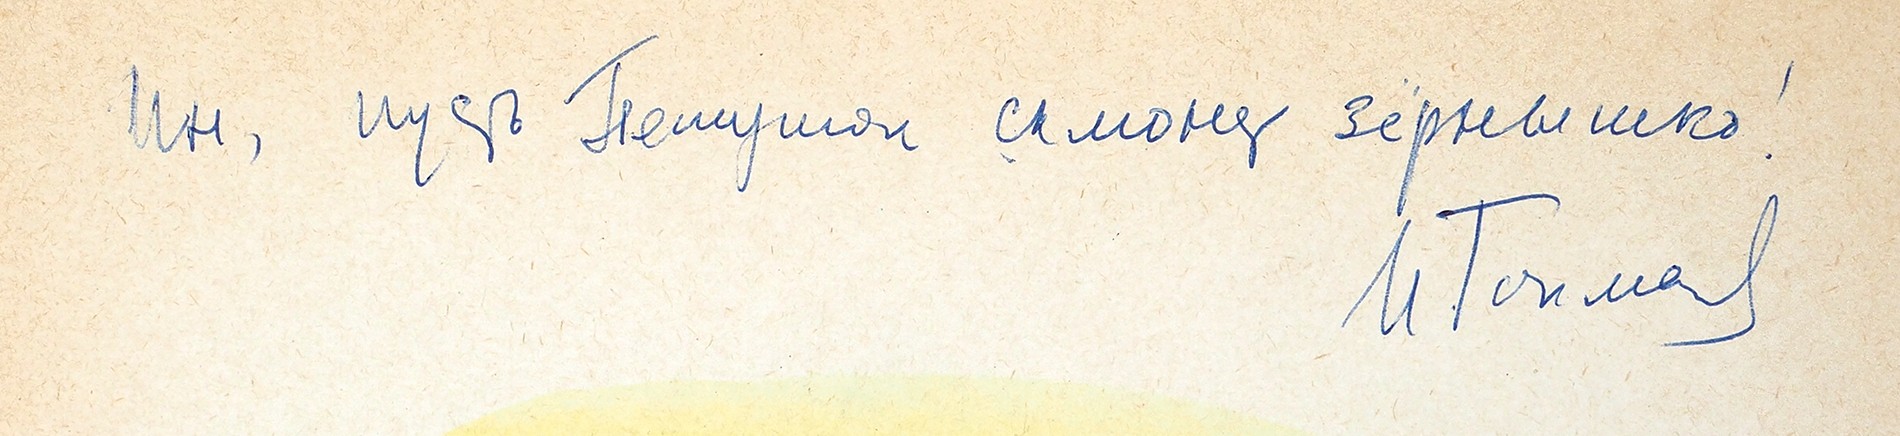 Ин, пусть Петушок склонет зёрнышко!
И. Токмак